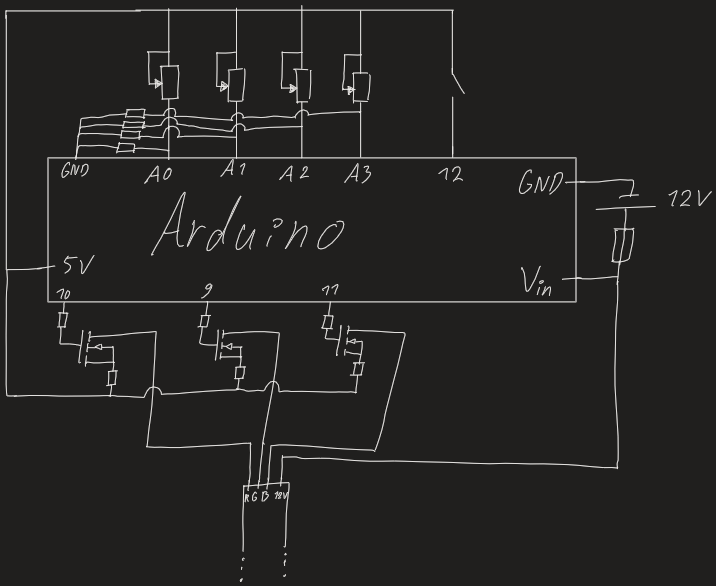 GND A0 A1 A2 A3 12
GND
12V
Arduino
5V
Vin
10 9 11
R G B 12V